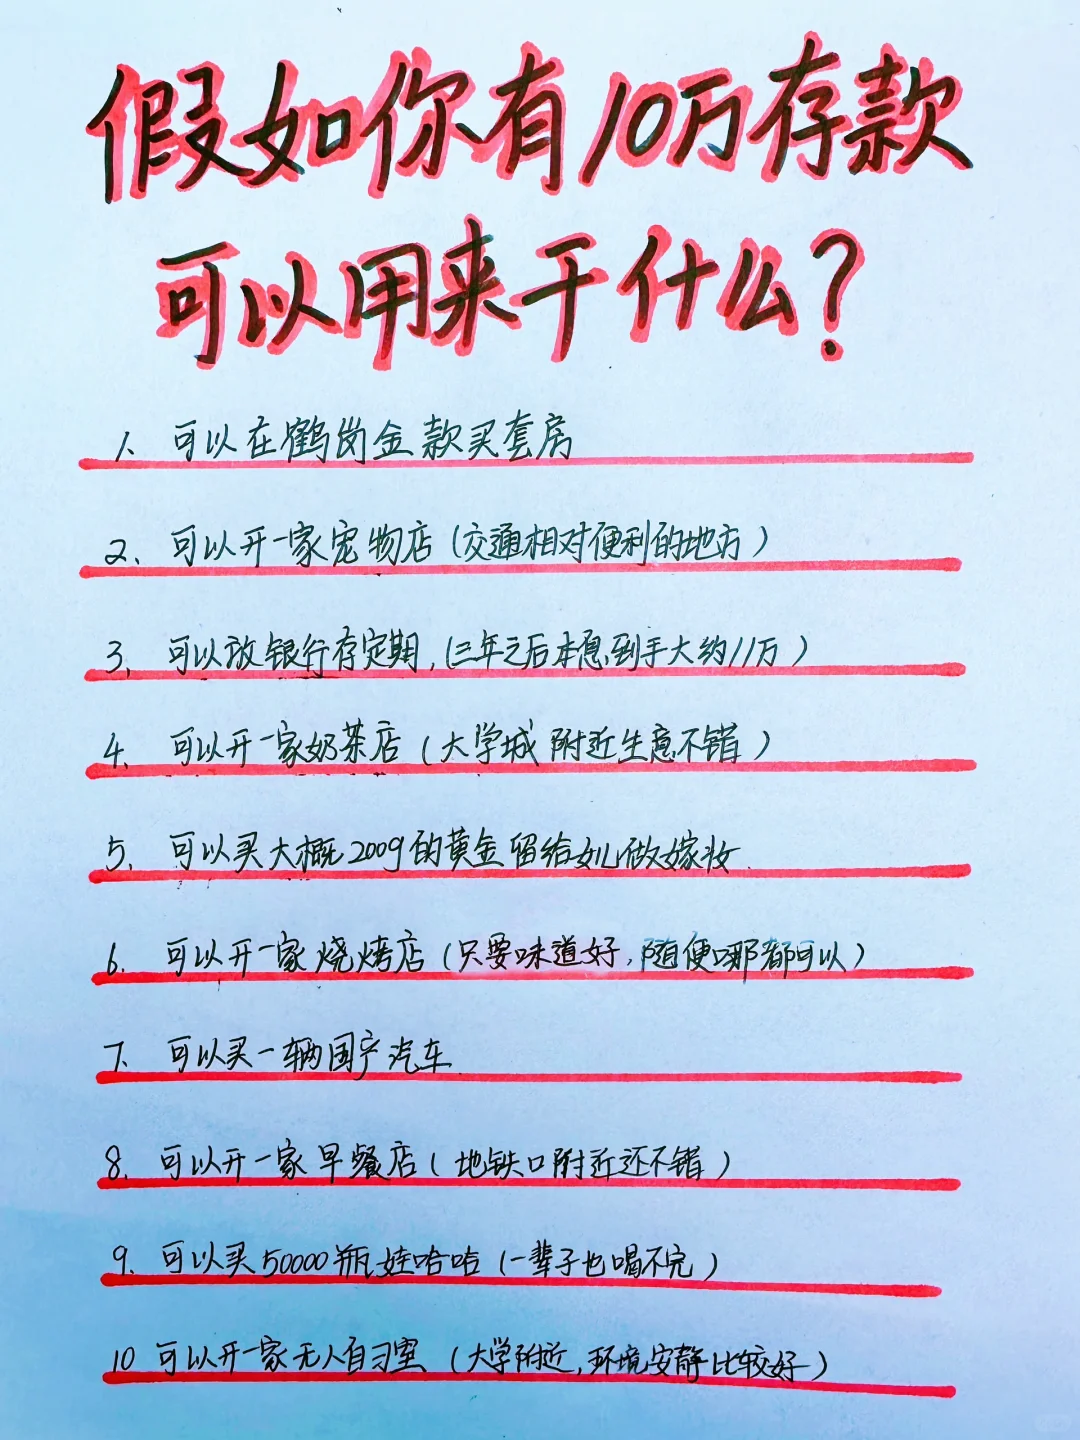 假如你有10万存款
可以用来干什么?
1、可以在鹤岗金款买套房
2、可以开一家宠物店(交通相对便利的地方)
3、可以放银行存定期,(三年之后本息到手大约11万)
4、可以开一家奶茶店(大学城附近生意不错)
5、可以买大概200g的黄金留给女儿做嫁妆
6、可以开一家烧烤店(只要味道好,随便哪都可以)
7、可以买一辆国产汽车
8、可以开一家早餐店(地铁口附近还不错)
9、可以买50000瓶娃哈哈(一辈子也喝不完)
10 可以开一家无人自习室(大学附近,环境安静比较好)